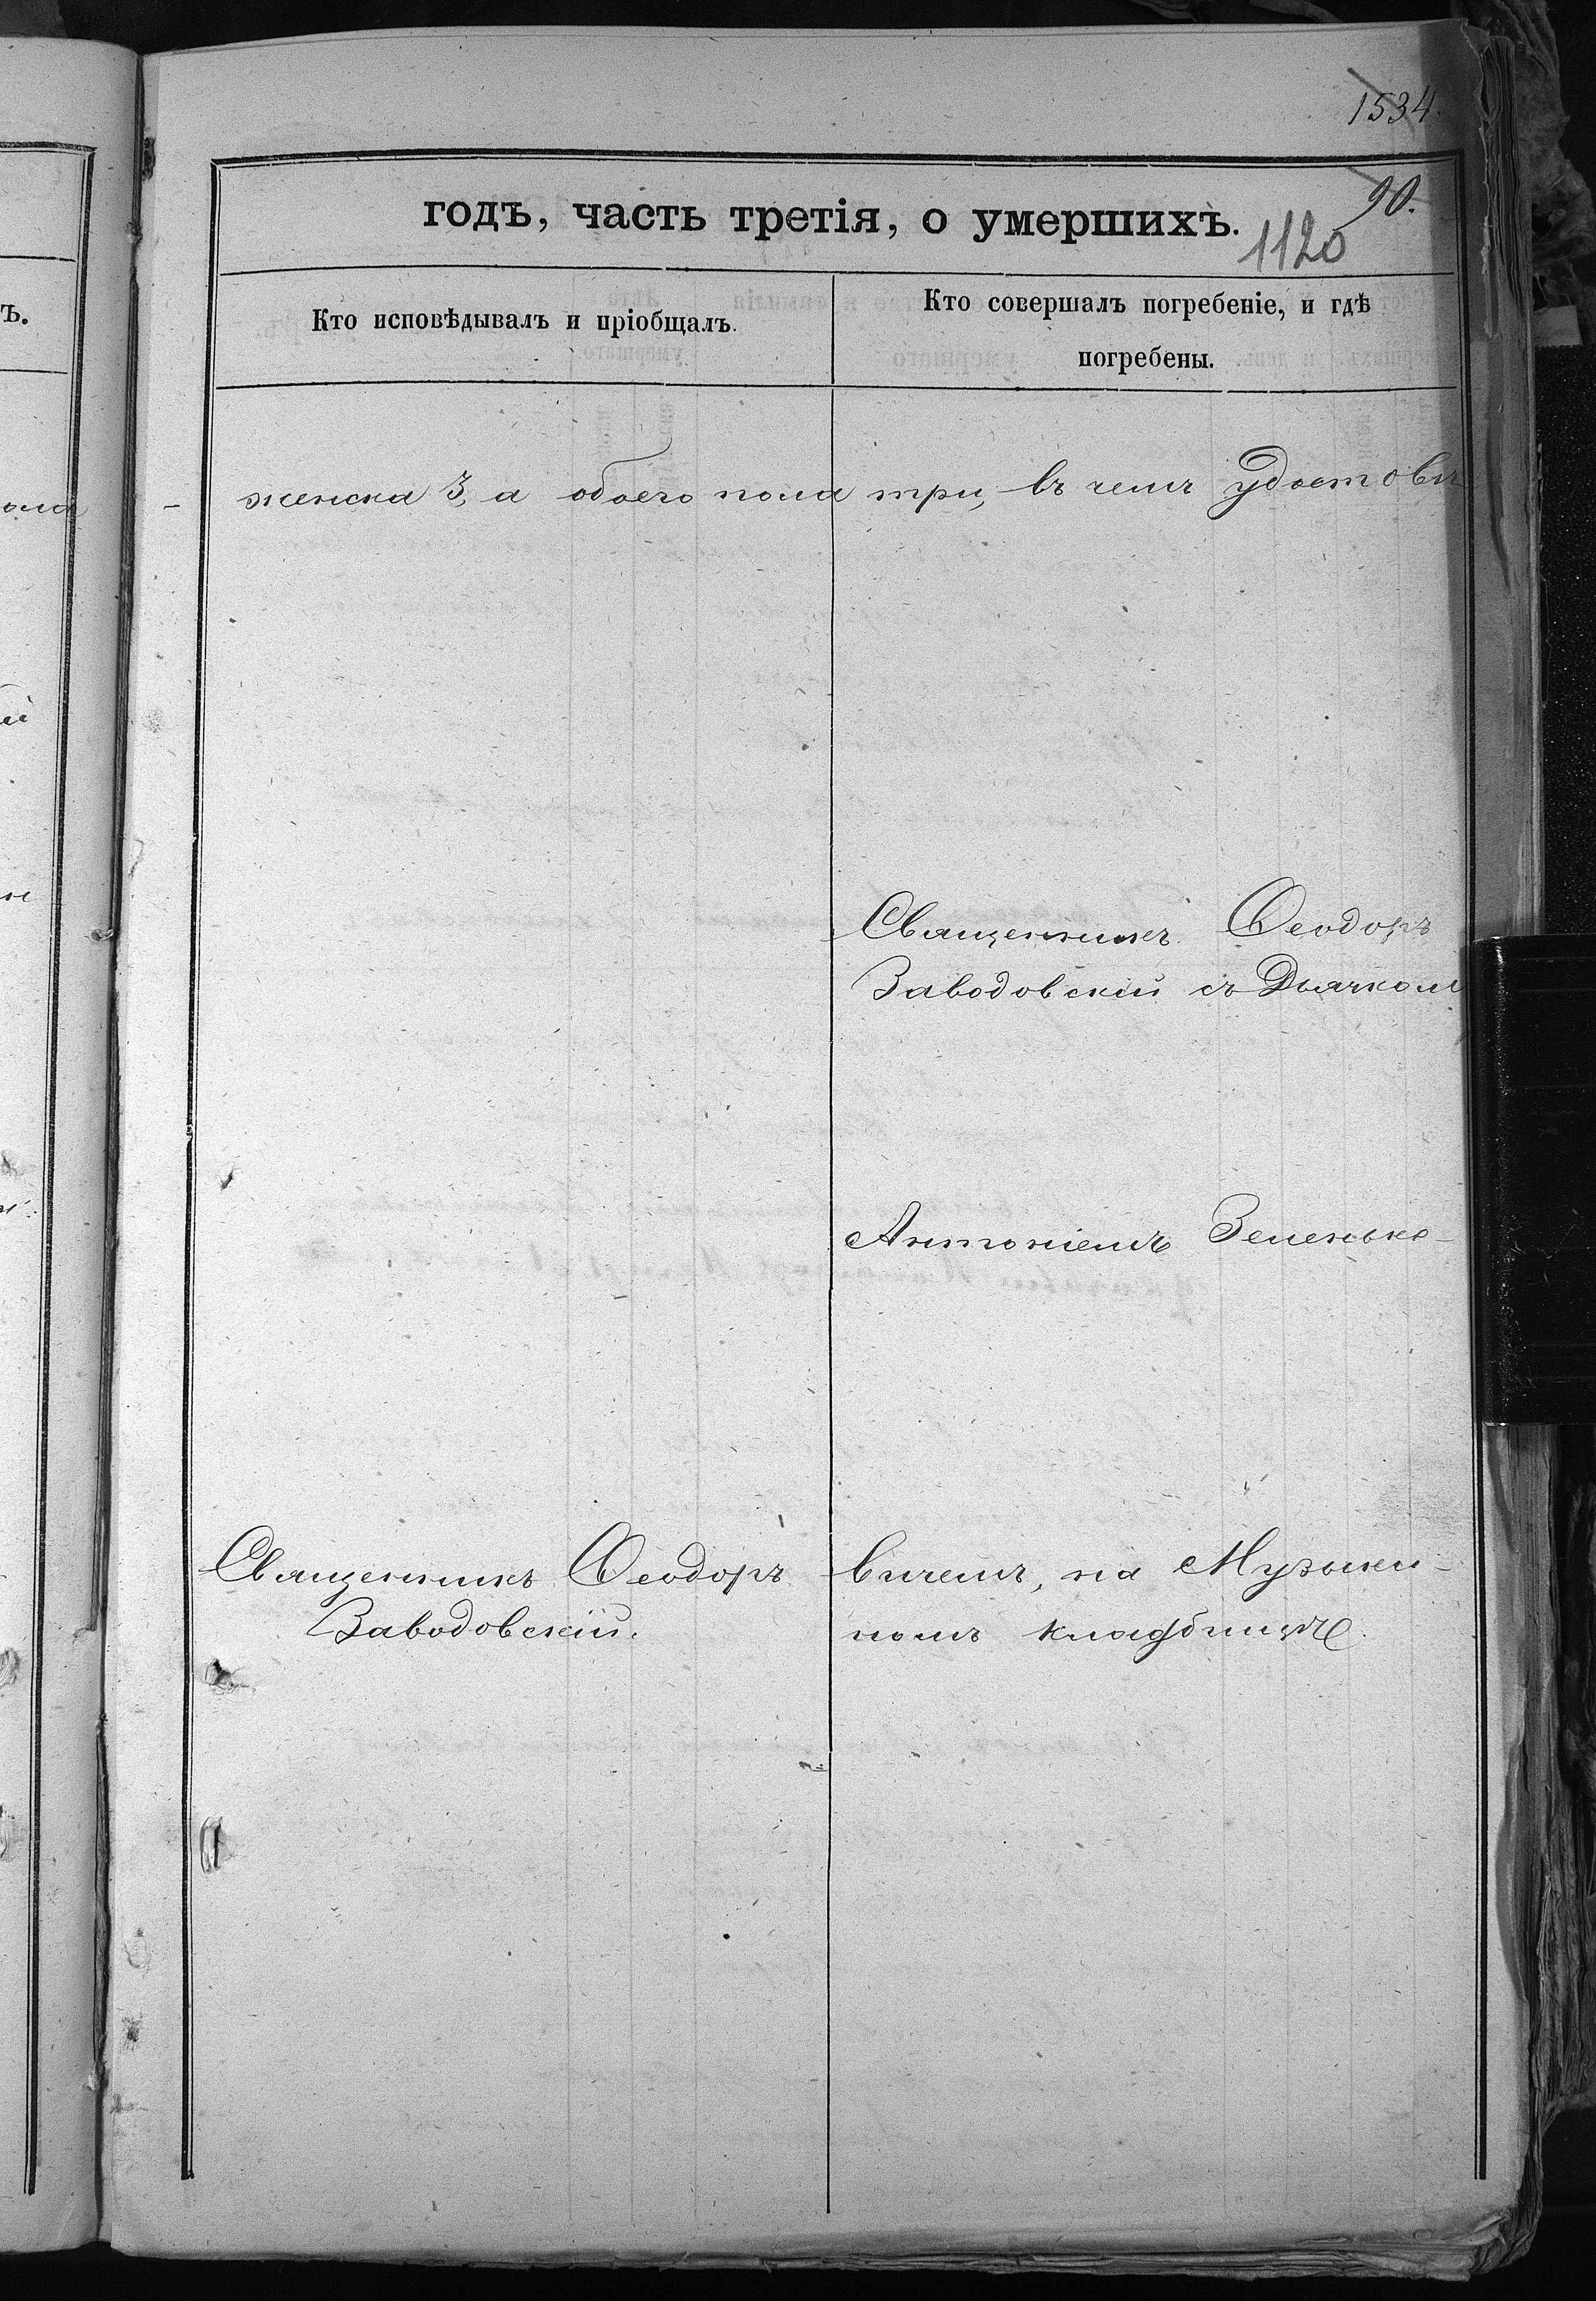 1534.
90.
годъ, часть третія, о умершихъ.
1120
Кто исповѣдывалъ и пріобщалъ.
Кто совершалъ погребеніе, и гдѣ
погребены.
женска 3, а обоего пола три, въ чемъ удостовѣ
Священникъ Ѳеодоръ
Заводовскій съ Дьячком
Антоніемъ Зененько-
Священникъ Ѳеодоръ
Заводовскій.
вичемъ, на Музыки-
номъ кладбищѣ.